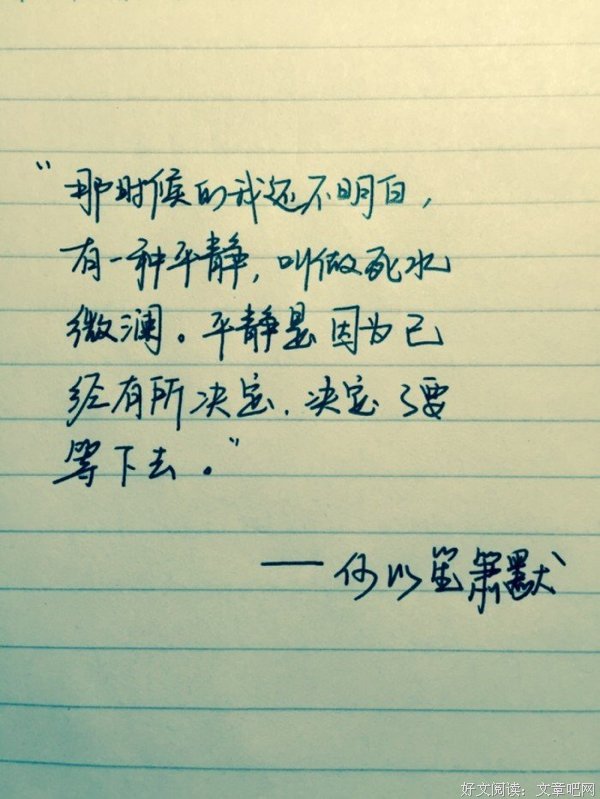 “那时候的我还不明白，
有一种平静，叫做死水
微澜。平静是因为已
经有所决定，决定了要
等下去。”
——何以笙箫默
好文阅读：文章吧网